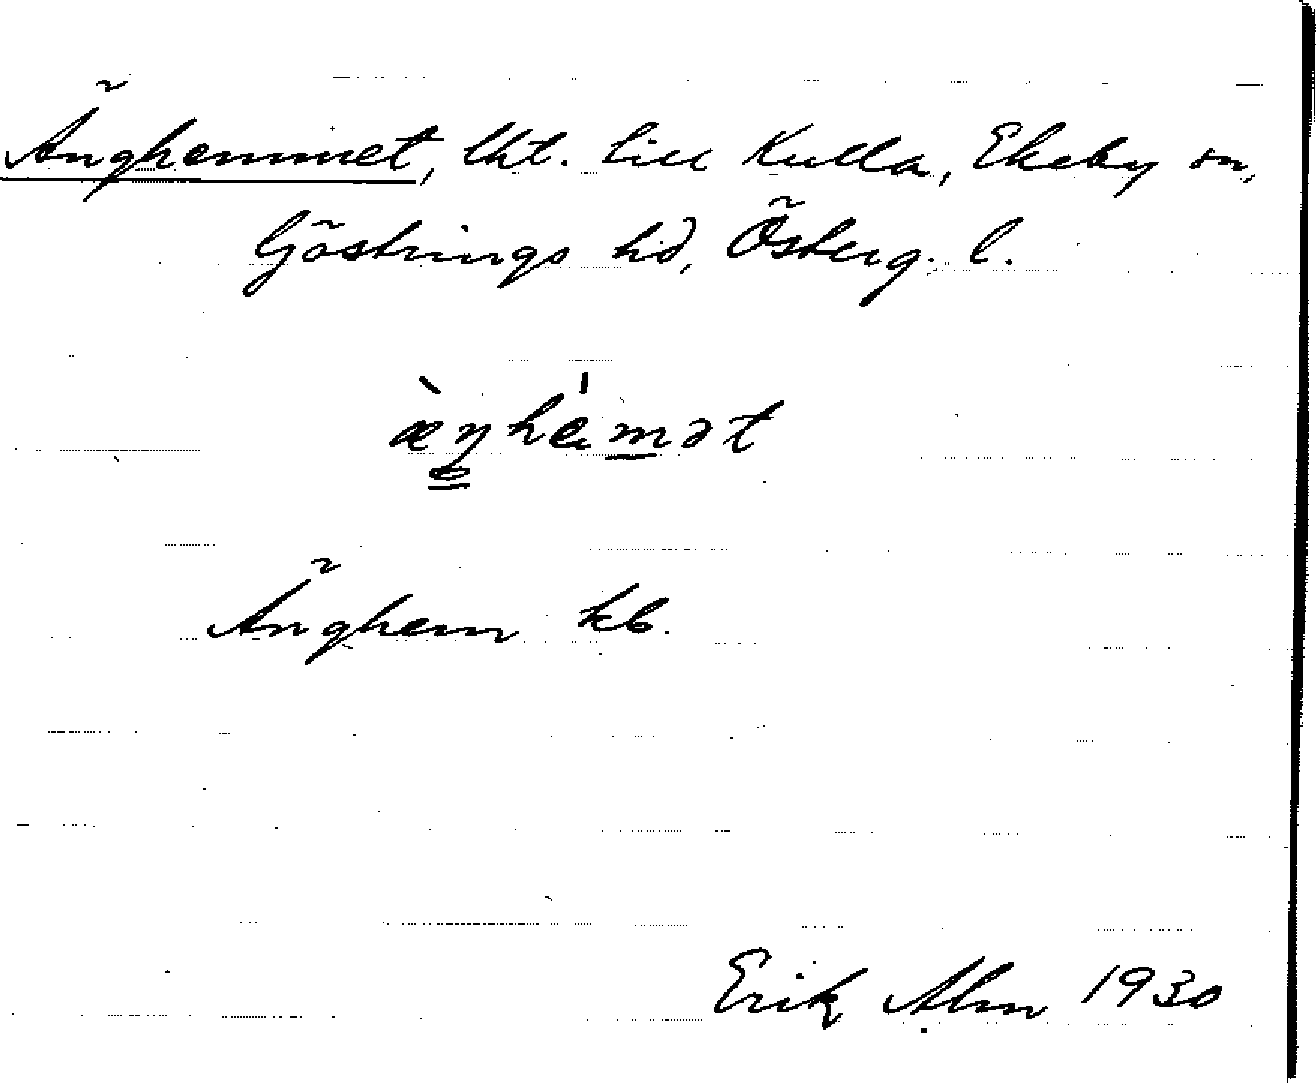 Änghemmet, lht. till Kulla, Ekeby sn,
Göstrings hd, Österg. l.
æ̀ŋhémət
Änghem kb.
Erik Alm 1930